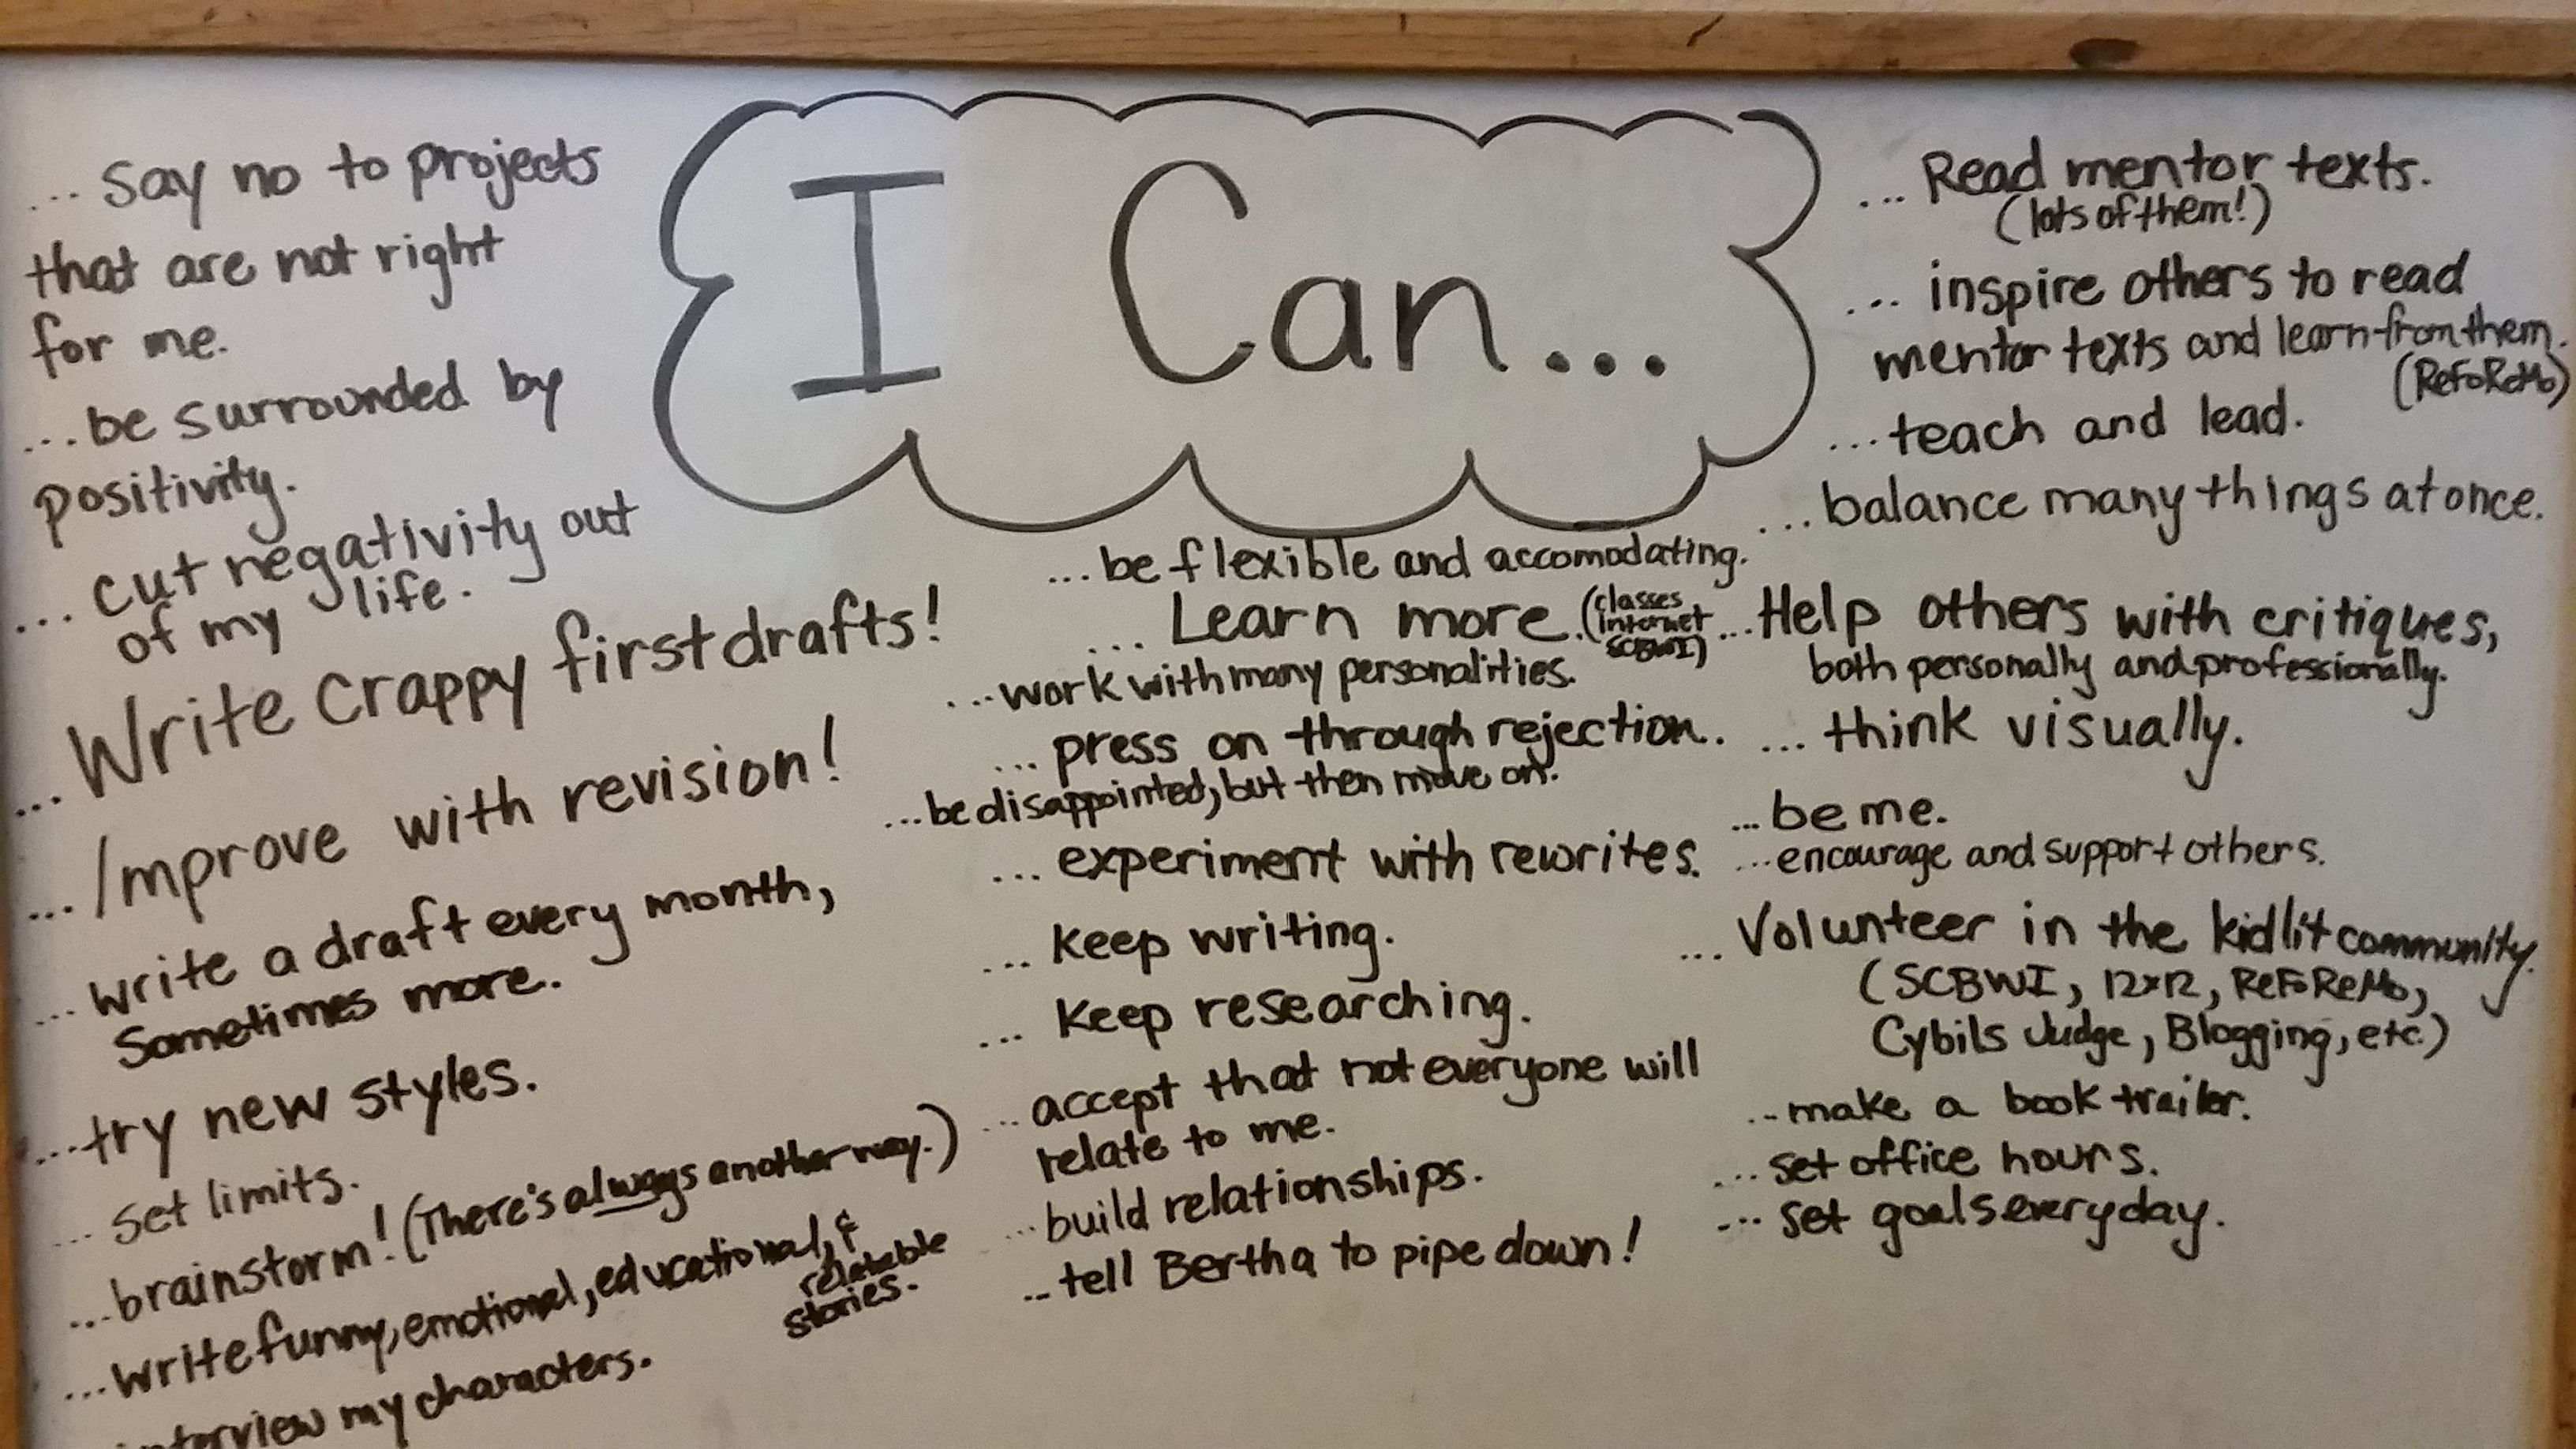 I Can...
... say no to projects
that are not right
for me.
...be surrounded by
positivity.
... cut negativity out
of my life.
... Write crappy first drafts!
... Improve with revision!
... write a draft every month,
sometimes more.
...try new styles.
... set limits.
...brainstorm! (There's always another way.)
...write funny, emotional, educational, &
relatable
stories.
interview my characters.
...be flexible and accomodating.
... Learn more. (classes
internet
SCBWI)
...work with many personalities.
... press on through rejection.
...be disappointed, but then move on.
... experiment with rewrites.
... keep writing.
... keep researching.
... accept that not everyone will
relate to me.
...build relationships.
...tell Bertha to pipe down!
... Read mentor texts.
(lots of them!)
... inspire others to read
mentor texts and learn from them.
(ReFoReMo)
...teach and lead.
...balance many things at once.
...Help others with critiques,
both personally and professionally.
... think visually.
...be me.
...encourage and support others.
... Volunteer in the kidlit community.
(SCBWI, 12x12, ReFoReMo,
Cybils Judge, Blogging, etc.)
...make a book trailer.
...set office hours.
... set goals everyday.